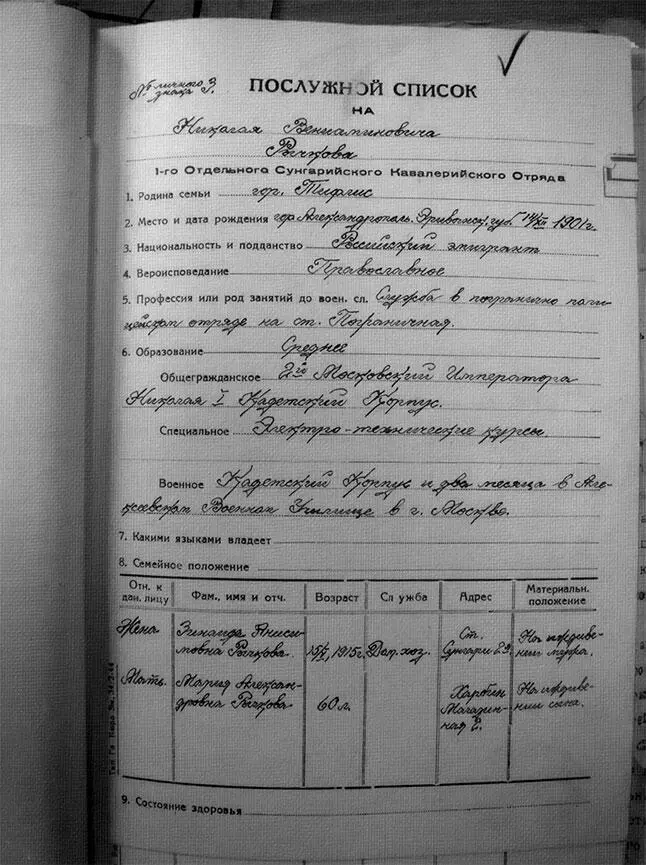 № личного
знака 3.
ПОСЛУЖНОЙ СПИСОК
НА
Николая Вениаминовича
Рычкова
1-го Отдельного Сунгарийского Кавалерийского Отряда
1. Родина семьи гор. Тифлис
2. Место и дата рождения гор. Александрополь. Эриванск. губ. 14/XII 1901г.
3. Национальность и подданство Российский эмигрант
4. Вероисповедание Православное
5. Профессия или род занятий до воен. сл. Служба в погранично поли-
цейском отряде на ст. Пограничная.
6. Образование Среднее
Общегражданское 2й Московский Императора
Николая I Кадетский Корпус.
Специальное Электро-технические курсы.
Военное Кадетский Корпус и два месяца в Але-
ксеевском Военном Училище в г. Москве.
7. Какими языками владеет
8. Семейное положение
Отн. к дан. лицу Фам., имя и отч. Возраст Служба Адрес Материальн. положение
Жена Зинаида Аниси-
мовна Рычкова. 1915г. Дом. хоз. Ст. Сунгари 2я. На иждиве-
нии мужа.
Мать. Мария Алексан-
дровна Рычкова 60 л. Харбин Магазин-
ная На иждиве-
нии сына.
9. Состояние здоровья